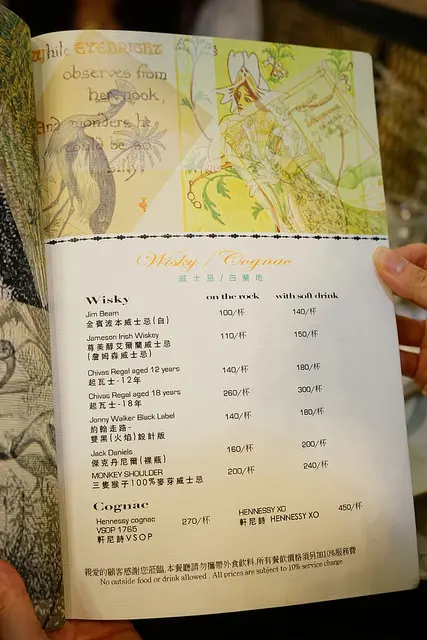 while EYEBRIGHT
observes from
her nook,
And wonders he
could be so
silly!
Wisky / Cognac
威士忌/白蘭地
Wisky on the rock with soft drink
Jim Beam 100/杯 140/杯
金賓波本威士忌(白)
Jameson Irish Wiskey 110/杯 150/杯
尊美醇艾爾蘭威士忌
(詹姆森威士忌)
Chivas Regal aged 12 years 140/杯 180/杯
起瓦士-12年
Chivas Regal aged 18 years 260/杯 300/杯
起瓦士-18年
Jonny Walker Black Label 140/杯 180/杯
約翰走路-
雙黑(火焰)設計版
Jack Daniels 160/杯 200/杯
傑克丹尼爾(裸瓶)
MONKEY SHOULDER 200/杯 240/杯
三隻猴子100%麥芽威士忌
Cognac
Hennessy cognac 270/杯 HENNESSY XO 450/杯
VSOP 1765 軒尼詩 HENNESSY XO
軒尼詩VSOP
親愛的顧客感謝您蒞臨,本餐廳請勿攜帶外食飲料,所有餐飲價格須另加10%服務費
No outside food or drink allowed . All prices are subject to 10% service charge